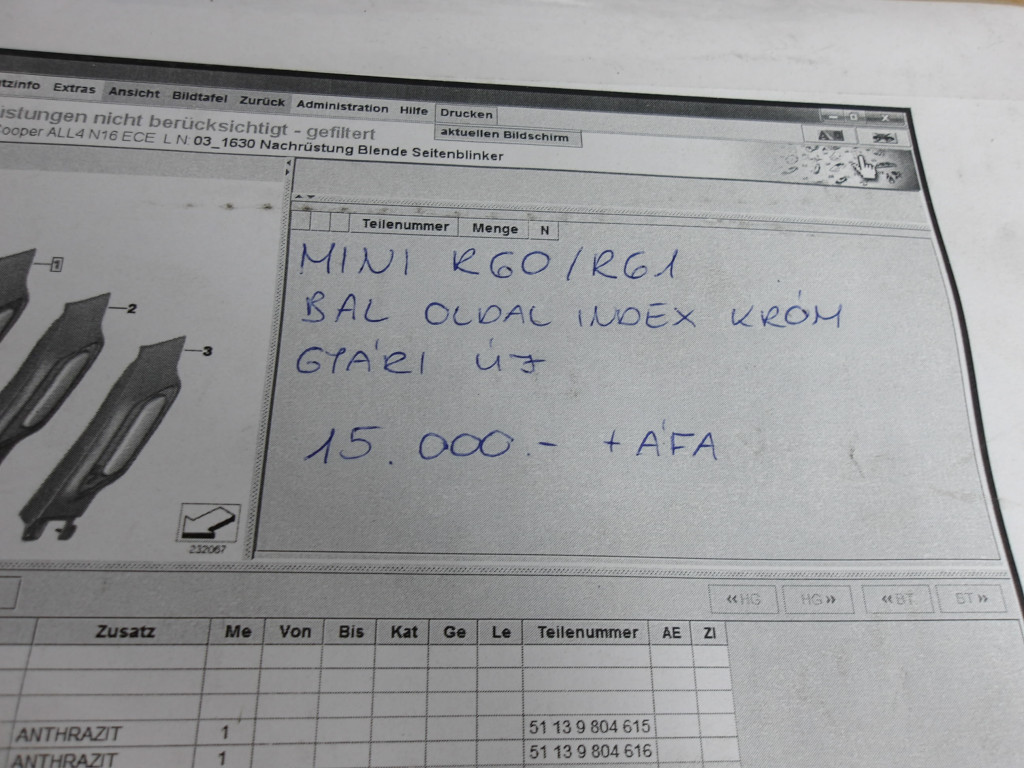 Extras Ansicht Bildtafel Zurück Administration Hilfe Drucken
aktuellen Bildschirm
nicht berücksichtigt - gefiltert
Cooper ALL4 N16 ECE L N: 03_1630 Nachrüstung Blende Seitenblinker
Teilenummer Menge N
MINI R60/R61
BAL OLDAL INDEX KRÓM
GYÁRI ÚJ
15.000.- + ÁFA
1
2
3
232067
«HG HG» «BT BT»
Zusatz Me Von Bis Kat Ge Le Teilenummer AE ZI
ANTHRAZIT 1 51 13 9 804 615
ANTHRAZIT 1 51 13 9 804 616